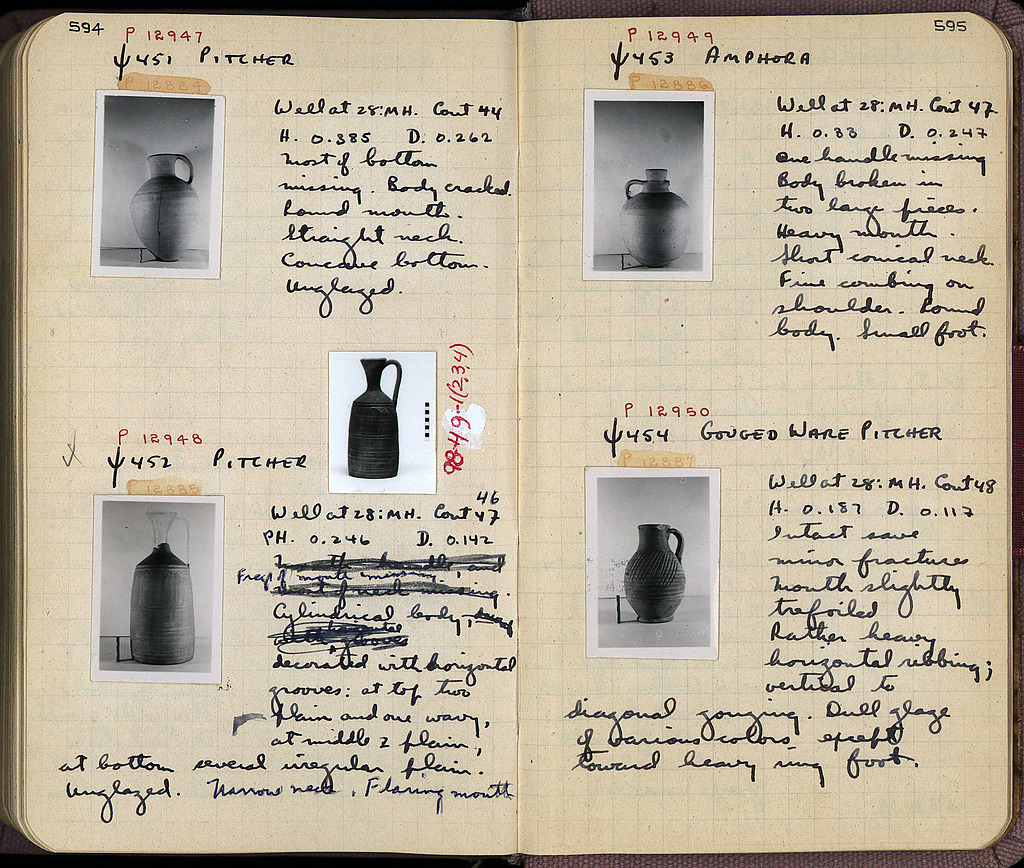 594
P 12947
ψ451 PITCHER
P 12884
Well at 28:MH. Cont 44
H. 0.385 D. 0.262
Most of bottom
missing. Body cracked.
Round mouth.
Straight neck.
Concave bottom.
Unglazed.
98-49-1(2,3,4)
P 12948
ψ452 PITCHER
P 12885
46
Well at 28:MH. Cont 47
PH. 0.246 D. 0.142
Mouth, handle, and
Frag of mouth missing.
part of neck missing.
Cylindrical body,
with horizontal
grooves
decorated with horizontal
grooves: at top two
plain and one wavy,
at middle 2 plain,
at bottom several irregular plain.
Unglazed. Narrow neck, Flaring mouth
595
P 12949
ψ453 AMPHORA
P 12886
Well at 28:MH. Cont 47
H. 0.33 D. 0.247
One handle missing
Body broken in
two large pieces.
Heavy mouth.
Short conical neck
Fine combing on
shoulder. Round
body. Small foot.
P 12950
ψ454 GOUGED WARE PITCHER
P 12887
Well at 28:MH. Cont 48
H. 0.187 D. 0.117
Intact save
minor fractures
Mouth slightly
trefoiled
Rather heavy
horizontal ribbing;
vertical to
diagonal gouging. Dull glaze
of various colors, except
toward heavy ring foot.